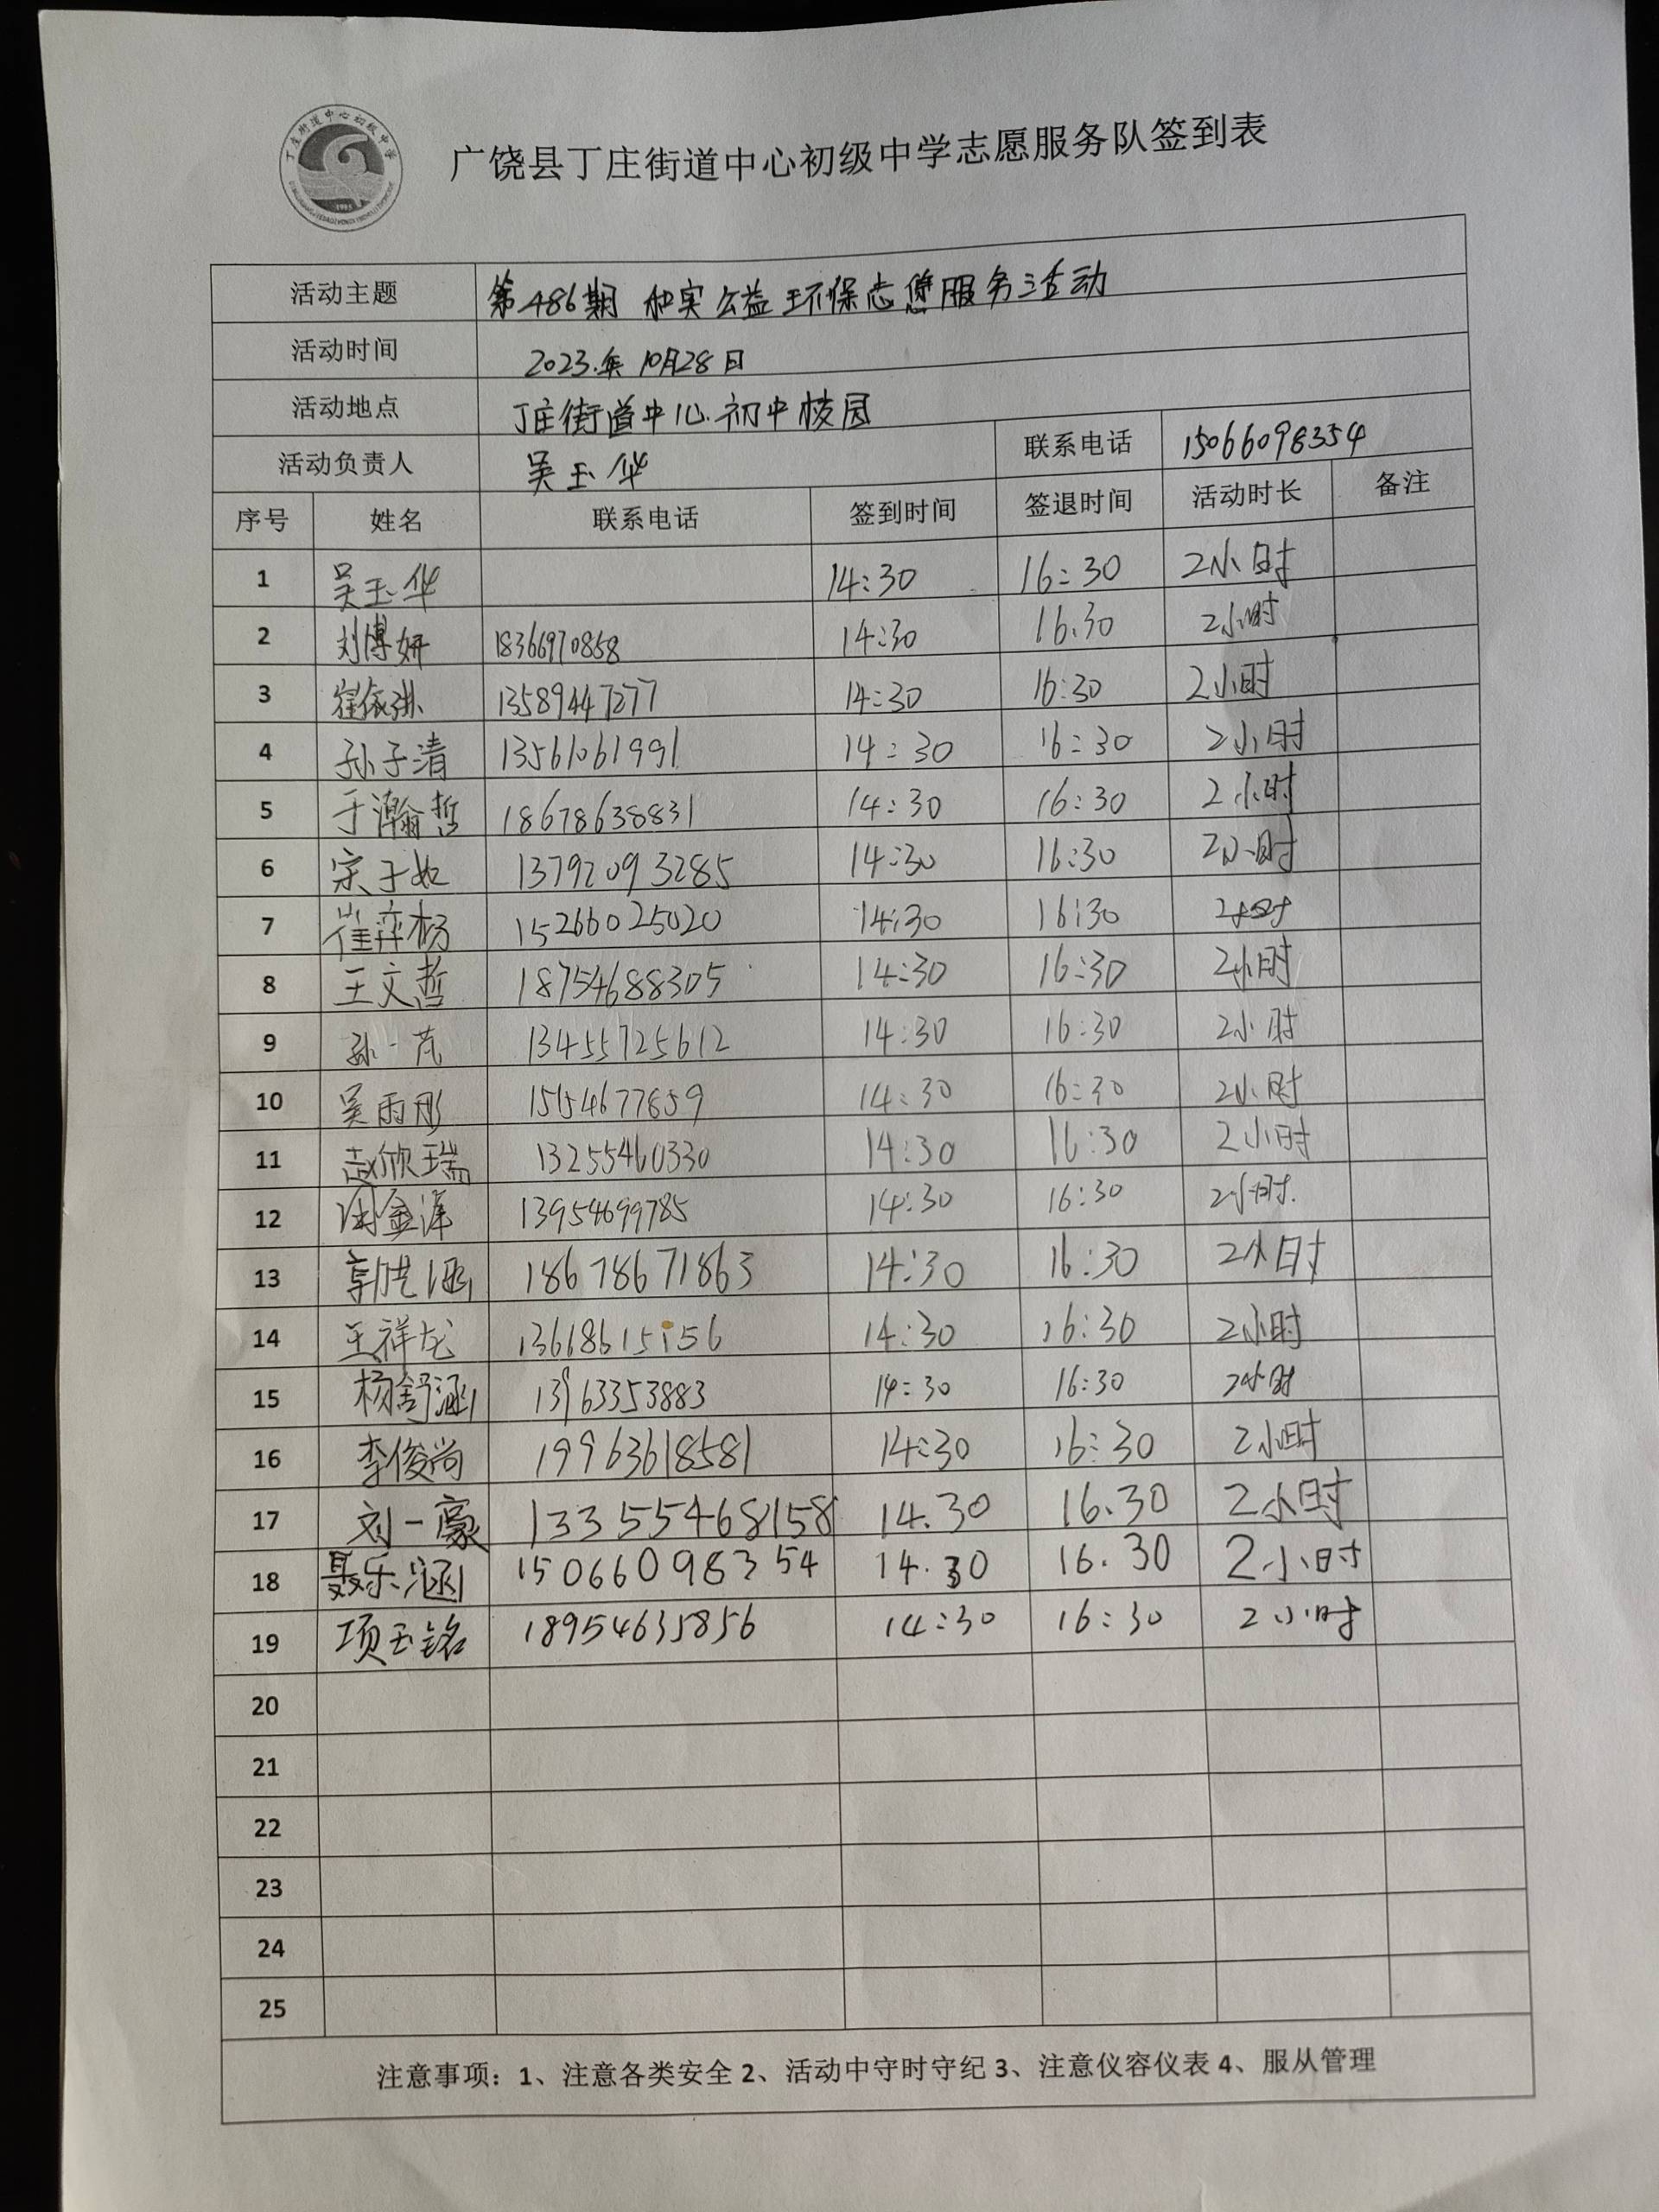 丁庄街道中心初级中学
1985
广饶县丁庄街道中心初级中学志愿服务队签到表
活动主题 第486期 和实公益环保志愿服务活动
活动时间 2023年10月28日
活动地点 丁庄街道中心初中校园
活动负责人 吴玉华 联系电话 15066098354
序号 姓名 联系电话 签到时间 签退时间 活动时长 备注
1 吴玉华 14:30 16:30 2小时
2 刘博妍 18366970858 14:30 16:30 2小时
3 崔依琳 13589447277 14:30 16:30 2小时
4 孙子清 13561061991 14:30 16:30 2小时
5 于瀚哲 18678638831 14:30 16:30 2小时
6 宋子如 13792093285 14:30 16:30 2小时
7 崔弈杨 15266025020 14:30 16:30 2小时
8 王文哲 18754688305 14:30 16:30 2小时
9 孙一芃 13455725612 14:30 16:30 2小时
10 吴雨彤 15154677859 14:30 16:30 2小时
11 赵欣瑞 13255460330 14:30 16:30 2小时
12 金泽 13954699785 14:30 16:30 2小时.
13 涵 18678671863 14:30 16:30 2小时
14 王祥龙 13618615156 14:30 16:30 2小时
15 杨舒涵 13963353883 14:30 16:30 2小时
16 李俊尚 19963618581 14:30 16:30 2小时
17 刘一豪 133555468158 14.30 16.30 2小时
18 聂乐涵 15066098354 14.30 16.30 2小时
19 项玉铭 18954635856 14:30 16:30 2小时
20
21
22
23
24
25
注意事项：1、注意各类安全 2、活动中守时守纪 3、注意仪容仪表 4、服从管理